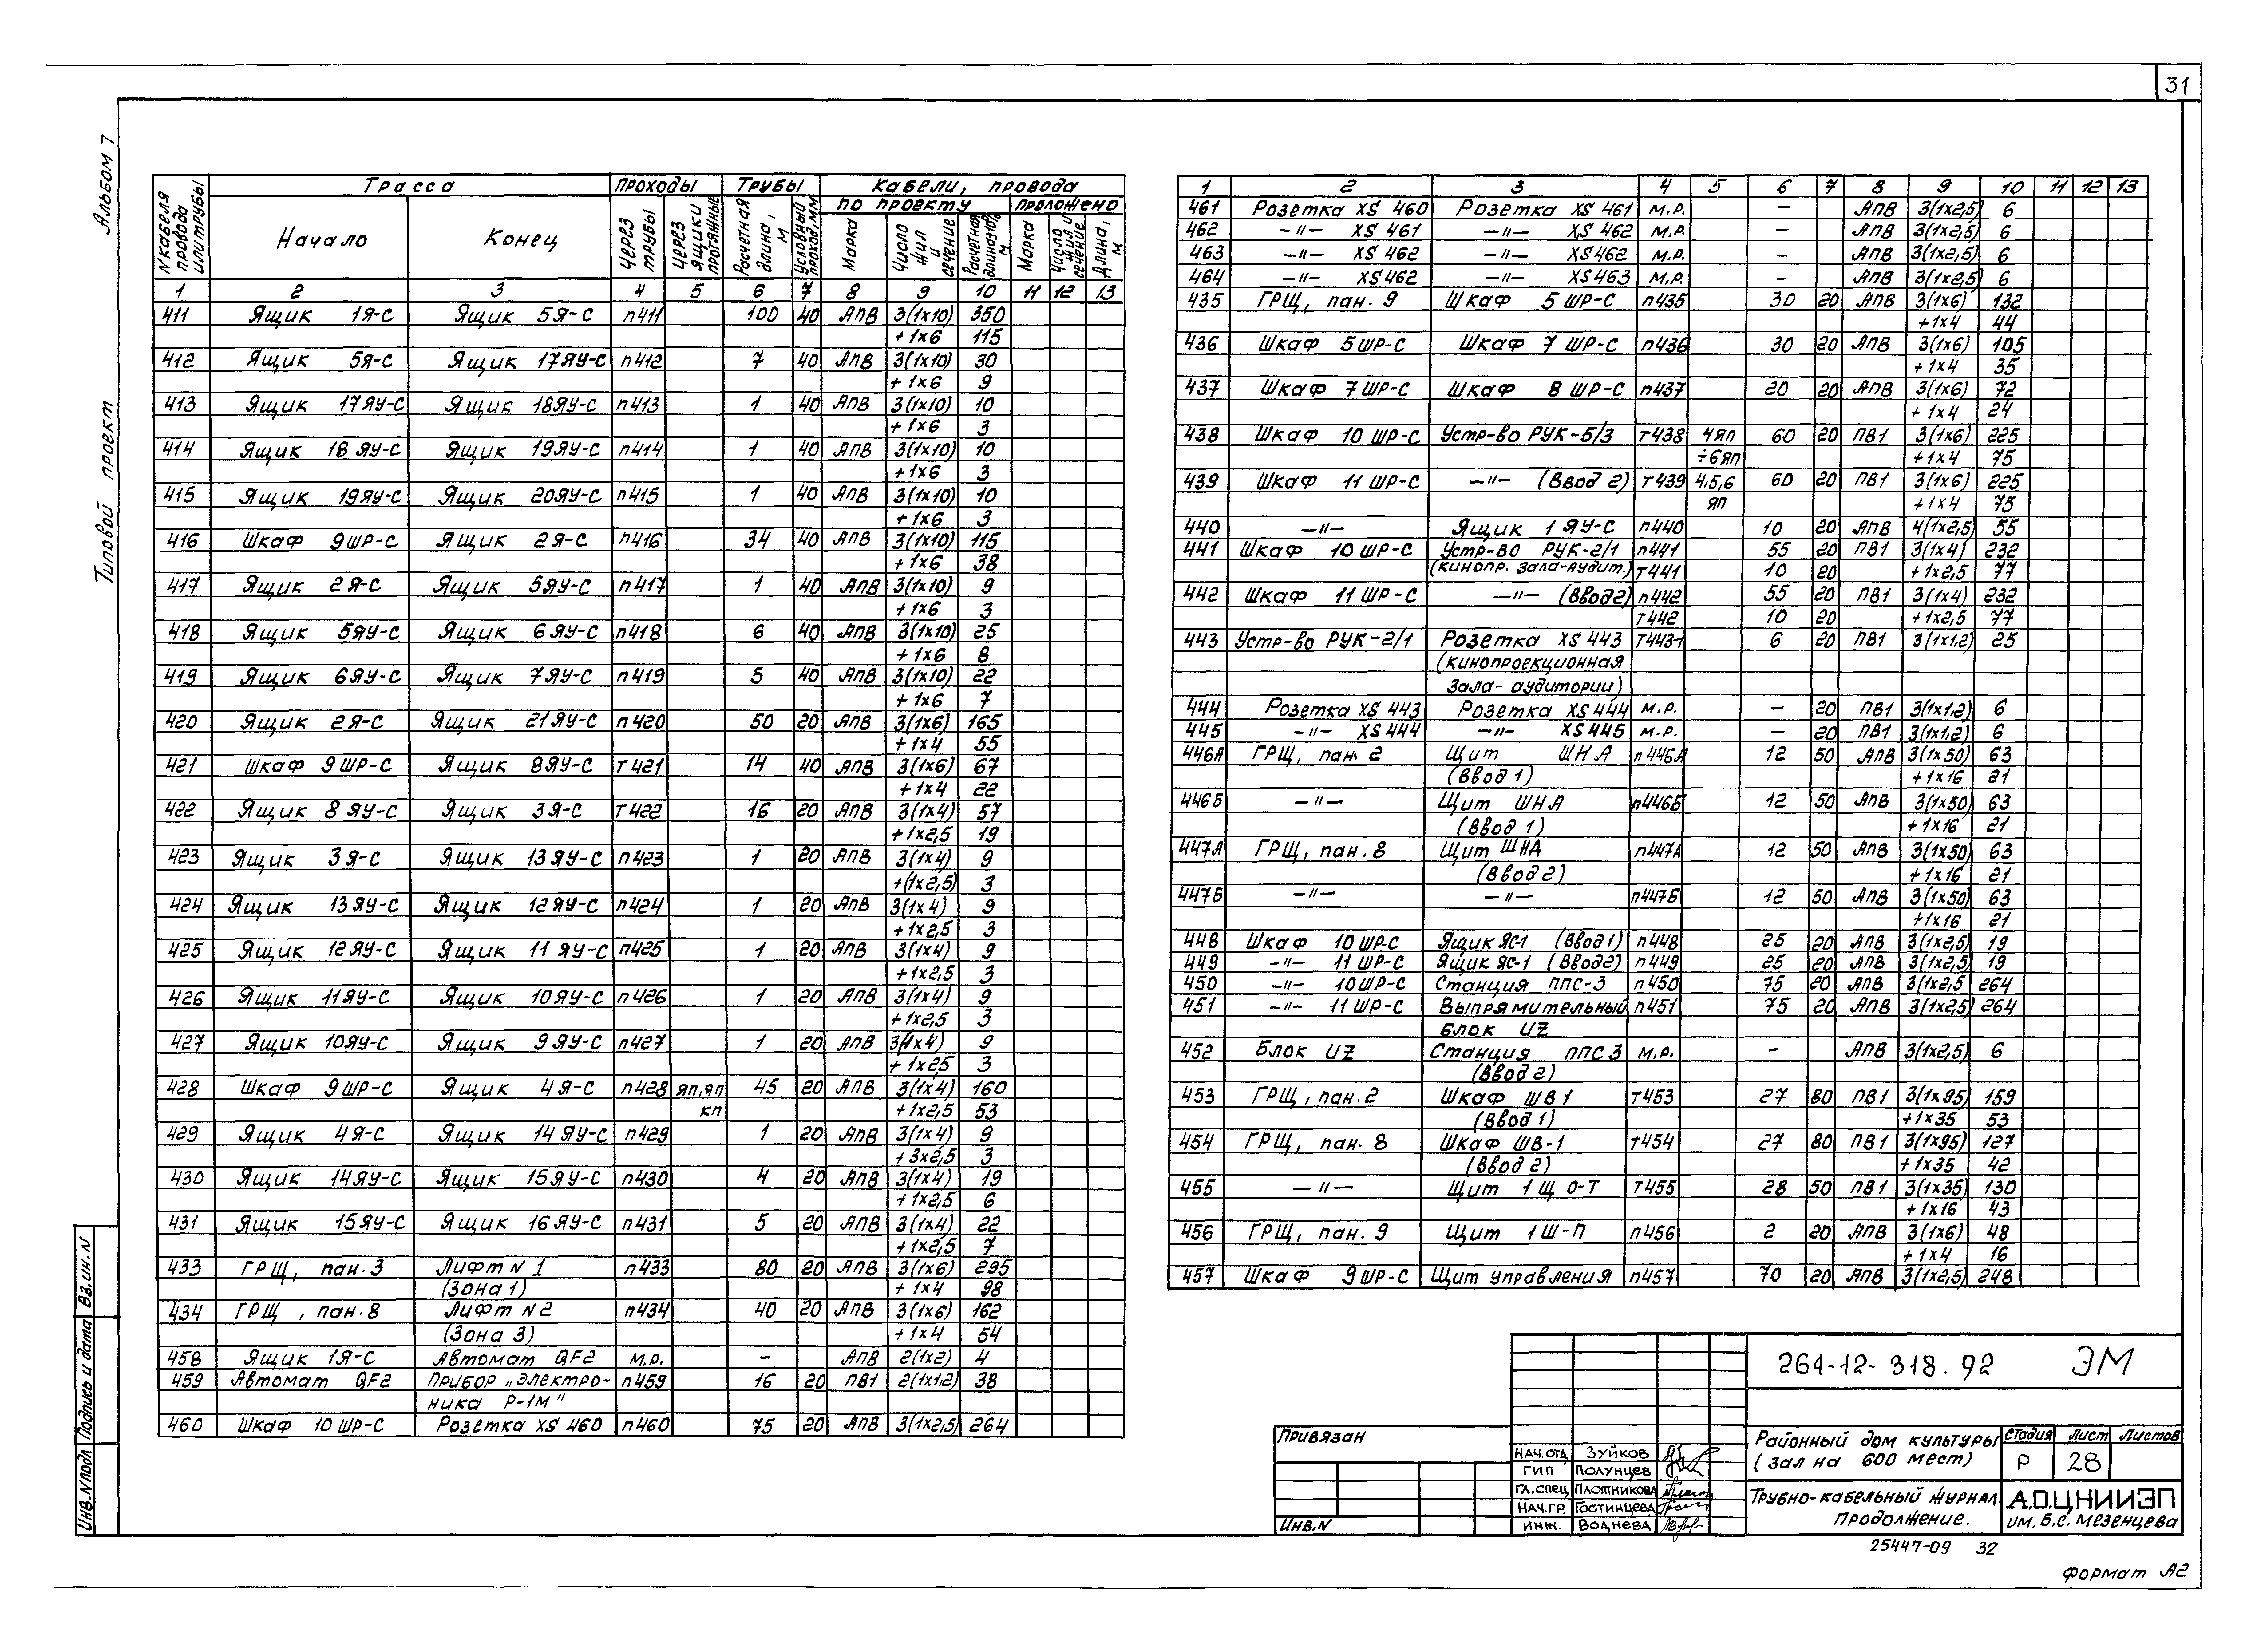 31
Альбом 7
Типовой проект
N кабеля провода или трубы | Трасса | Проходы | Трубы | Кабели, провода
по проекту | проложено
Начало | Конец | Через трубы | Через ящики протяжные | Расчетная длина, м | Условный проход, мм | Марка | Число жил и сечение | Расчетная длина, м | Марка | Число жил и сечение | Длина, м
1 | 2 | 3 | 4 | 5 | 6 | 7 | 8 | 9 | 10 | 11 | 12 | 13
411 | Ящик 1Я-С | Ящик 5Я-С | п411 | 100 | 40 | АПВ | 3(1х10) | 350
+1х6 | 115
412 | Ящик 5Я-С | Ящик 17ЯУ-С | п412 | 7 | 40 | АПВ | 3(1х10) | 30
+1х6 | 9
413 | Ящик 17ЯУ-С | Ящик 18ЯУ-С | п413 | 1 | 40 | АПВ | 3(1х10) | 10
+1х6 | 3
414 | Ящик 18ЯУ-С | Ящик 19ЯУ-С | п414 | 1 | 40 | АПВ | 3(1х10) | 10
+1х6 | 3
415 | Ящик 19ЯУ-С | Ящик 20ЯУ-С | п415 | 1 | 40 | АПВ | 3(1х10) | 10
+1х6 | 3
416 | Шкаф 9ШР-С | Ящик 2Я-С | п416 | 34 | 40 | АПВ | 3(1х10) | 115
+1х6 | 38
417 | Ящик 2Я-С | Ящик 5ЯУ-С | п417 | 1 | 40 | АПВ | 3(1х10) | 9
+1х6 | 3
418 | Ящик 5ЯУ-С | Ящик 6ЯУ-С | п418 | 6 | 40 | АПВ | 3(1х10) | 25
+1х6 | 8
419 | Ящик 6ЯУ-С | Ящик 7ЯУ-С | п419 | 5 | 40 | АПВ | 3(1х10) | 22
+1х6 | 7
420 | Ящик 2Я-С | Ящик 21ЯУ-С | п420 | 50 | 20 | АПВ | 3(1х6) | 165
+1х4 | 55
421 | Шкаф 9ШР-С | Ящик 8ЯУ-С | Т421 | 14 | 40 | АПВ | 3(1х6) | 67
+1х4 | 22
422 | Ящик 8ЯУ-С | Ящик 3Я-С | Т422 | 16 | 20 | АПВ | 3(1х4) | 57
+1х2,5 | 19
423 | Ящик 3Я-С | Ящик 13ЯУ-С | п423 | 1 | 20 | АПВ | 3(1х4) | 9
+(1х2,5) | 3
424 | Ящик 13ЯУ-С | Ящик 12ЯУ-С | п424 | 1 | 20 | АПВ | 3(1х4) | 9
+1х2,5 | 3
425 | Ящик 12ЯУ-С | Ящик 11ЯУ-С | п425 | 1 | 20 | АПВ | 3(1х4) | 9
+1х2,5 | 3
426 | Ящик 11ЯУ-С | Ящик 10ЯУ-С | п426 | 1 | 20 | АПВ | 3(1х4) | 9
+1х2,5 | 3
427 | Ящик 10ЯУ-С | Ящик 9ЯУ-С | п427 | 1 | 20 | АПВ | 3(1х4) | 9
+1х25 | 3
428 | Шкаф 9ШР-С | Ящик 4Я-С | п428 | яп,яп | 45 | 20 | АПВ | 3(1х4) | 160
кп | +1х2,5 | 53
429 | Ящик 4Я-С | Ящик 14ЯУ-С | п429 | 1 | 20 | АПВ | 3(1х4) | 9
+3х2,5 | 3
430 | Ящик 14ЯУ-С | Ящик 15ЯУ-С | п430 | 4 | 20 | АПВ | 3(1х4) | 19
+1х2,5 | 6
431 | Ящик 15ЯУ-С | Ящик 16ЯУ-С | п431 | 5 | 20 | АПВ | 3(1х4) | 22
+1х2,5 | 7
433 | ГРЩ, пан. 3 | Лифт N 1 | п433 | 80 | 20 | АПВ | 3(1х6) | 295
(Зона 1) | +1х4 | 98
434 | ГРЩ, пан. 8 | Лифт N 2 | п434 | 40 | 20 | АПВ | 3(1х6) | 162
(Зона 3) | +1х4 | 54
458 | Ящик 1Я-С | Автомат QF2 | м.р. | – | АПВ | 2(1х2) | 4
459 | Автомат QF2 | Прибор „Электро- | п459 | 16 | 20 | ПВ1 | 2(1х1,2) | 38
ника Р-1М"
460 | Шкаф 10ШР-С | Розетка XS 460 | п460 | 75 | 20 | АПВ | 3(1х2,5) | 264
1 | 2 | 3 | 4 | 5 | 6 | 7 | 8 | 9 | 10 | 11 | 12 | 13
461 | Розетка XS 460 | Розетка XS 461 | м.р. | – | АПВ | 3(1х2,5) | 6
462 | –"– XS 461 | –"– XS 462 | м.р. | – | АПВ | 3(1х2,5) | 6
463 | –"– XS 462 | –"– XS462 | м.р. | – | АПВ | 3(1х2,5) | 6
464 | –"– XS462 | –"– XS463 | м.р. | – | АПВ | 3(1х2,5) | 6
435 | ГРЩ, пан. 9 | Шкаф 5ШР-С | п435 | 30 | 20 | АПВ | 3(1х6) | 132
+1х4 | 44
436 | Шкаф 5ШР-С | Шкаф 7ШР-С | п436 | 30 | 20 | АПВ | 3(1х6) | 105
+1х4 | 35
437 | Шкаф 7ШР-С | Шкаф 8ШР-С | п437 | 20 | 20 | АПВ | 3(1х6) | 72
+1х4 | 24
438 | Шкаф 10ШР-С | Устр-во РУК-5/3 | Т438 | 4яп | 60 | 20 | ПВ1 | 3(1х6) | 225
÷6яп | +1х4 | 75
439 | Шкаф 11ШР-С | –"– (Ввод 2) | Т439 | 4,5,6 | 60 | 20 | ПВ1 | 3(1х6) | 225
яп | +1х4 | 75
440 | –"– | Ящик 1ЯУ-С | п440 | 10 | 20 | АПВ | 4(1х2,5) | 55
441 | Шкаф 10ШР-С | Устр-во РУК-2/1 | п441 | 55 | 20 | ПВ1 | 3(1х4) | 232
(кинопр. зала-аудит.) | Т441 | 10 | 20 | +1х2,5 | 77
442 | Шкаф 11ШР-С | –"– (Ввод2) | п442 | 55 | 20 | ПВ1 | 3(1х4) | 232
Т442 | 10 | 20 | +1х2,5 | 77
443 | Устр-во РУК-2/1 | Розетка XS 443 | Т443-1 | 6 | 20 | ПВ1 | 3(1х1,2) | 25
(кинопроекционная
зала-аудитории)
444 | Розетка XS 443 | Розетка XS 444 | м.р. | – | 20 | ПВ1 | 3(1х1,2) | 6
445 | –"– XS 444 | –"– XS 445 | м.р. | – | 20 | ПВ1 | 3(1х1,2) | 6
446А | ГРЩ, пан. 2 | Щит ШНА | п446А | 12 | 50 | АПВ | 3(1х50) | 63
(Ввод 1) | +1х16 | 21
446Б | –"– | Щит ШНА | п446Б | 12 | 50 | АПВ | 3(1х50) | 63
(Ввод 1) | +1х16 | 21
447А | ГРЩ, пан. 8 | Щит ШНА | п447А | 12 | 50 | АПВ | 3(1х50) | 63
(Ввод 2) | +1х16 | 21
447Б | –"– | –"– | п447Б | 12 | 50 | АПВ | 3(1х50) | 63
+1х16 | 21
448 | Шкаф 10ШР-С | Ящик ЯС-1 (Ввод1) | п448 | 25 | 20 | АПВ | 3(1х2,5) | 19
449 | –"– 11ШР-С | Ящик ЯС-1 (Ввод2) | п449 | 25 | 20 | АПВ | 3(1х2,5) | 19
450 | –"– 10ШР-С | Станция ППС-3 | п450 | 75 | 20 | АПВ | 3(1х2,5 | 264
451 | –"– 11ШР-С | Выпрямительный | п451 | 75 | 20 | АПВ | 3(1х2,5) | 264
блок UZ
452 | Блок UZ | Станция ППС 3 | м.р. | – | АПВ | 3(1х2,5) | 6
(Ввод 2)
453 | ГРЩ, пан. 2 | Шкаф ШВ1 | Т453 | 27 | 80 | ПВ1 | 3(1х95) | 159
(Ввод 1) | +1х35 | 53
454 | ГРЩ, пан. 8 | Шкаф ШВ-1 | Т454 | 27 | 80 | ПВ1 | 3(1х95) | 127
(Ввод 2) | +1х35 | 42
455 | –"– | Щит 1ЩО-Т | Т455 | 28 | 50 | ПВ1 | 3(1х35) | 130
+1х16 | 43
456 | ГРЩ, пан. 9 | Щит 1Ш-П | п456 | 2 | 20 | АПВ | 3(1х6) | 48
+1х4 | 16
457 | Шкаф 9ШР-С | Щит управления | п457 | 70 | 20 | АПВ | 3(1х2,5) | 248
Вз.ин.N
Подпись и дата
Инв.N подл
Привязан
Инв.N
264-12-318.92 ЭМ
Нач.отд. Зуйков
ГИП Полунцев
Гл.спец Плотникова
Нач.гр. Гостинцева
Инж. Воднева
Районный дом культуры
(зал на 600 мест)
Стадия | Лист | Листов
Р | 28
Трубно-кабельный журнал.
Продолжение.
А.О.ЦНИИЭП
им. Б.С. Мезенцева
25447-09 32
Формат А2